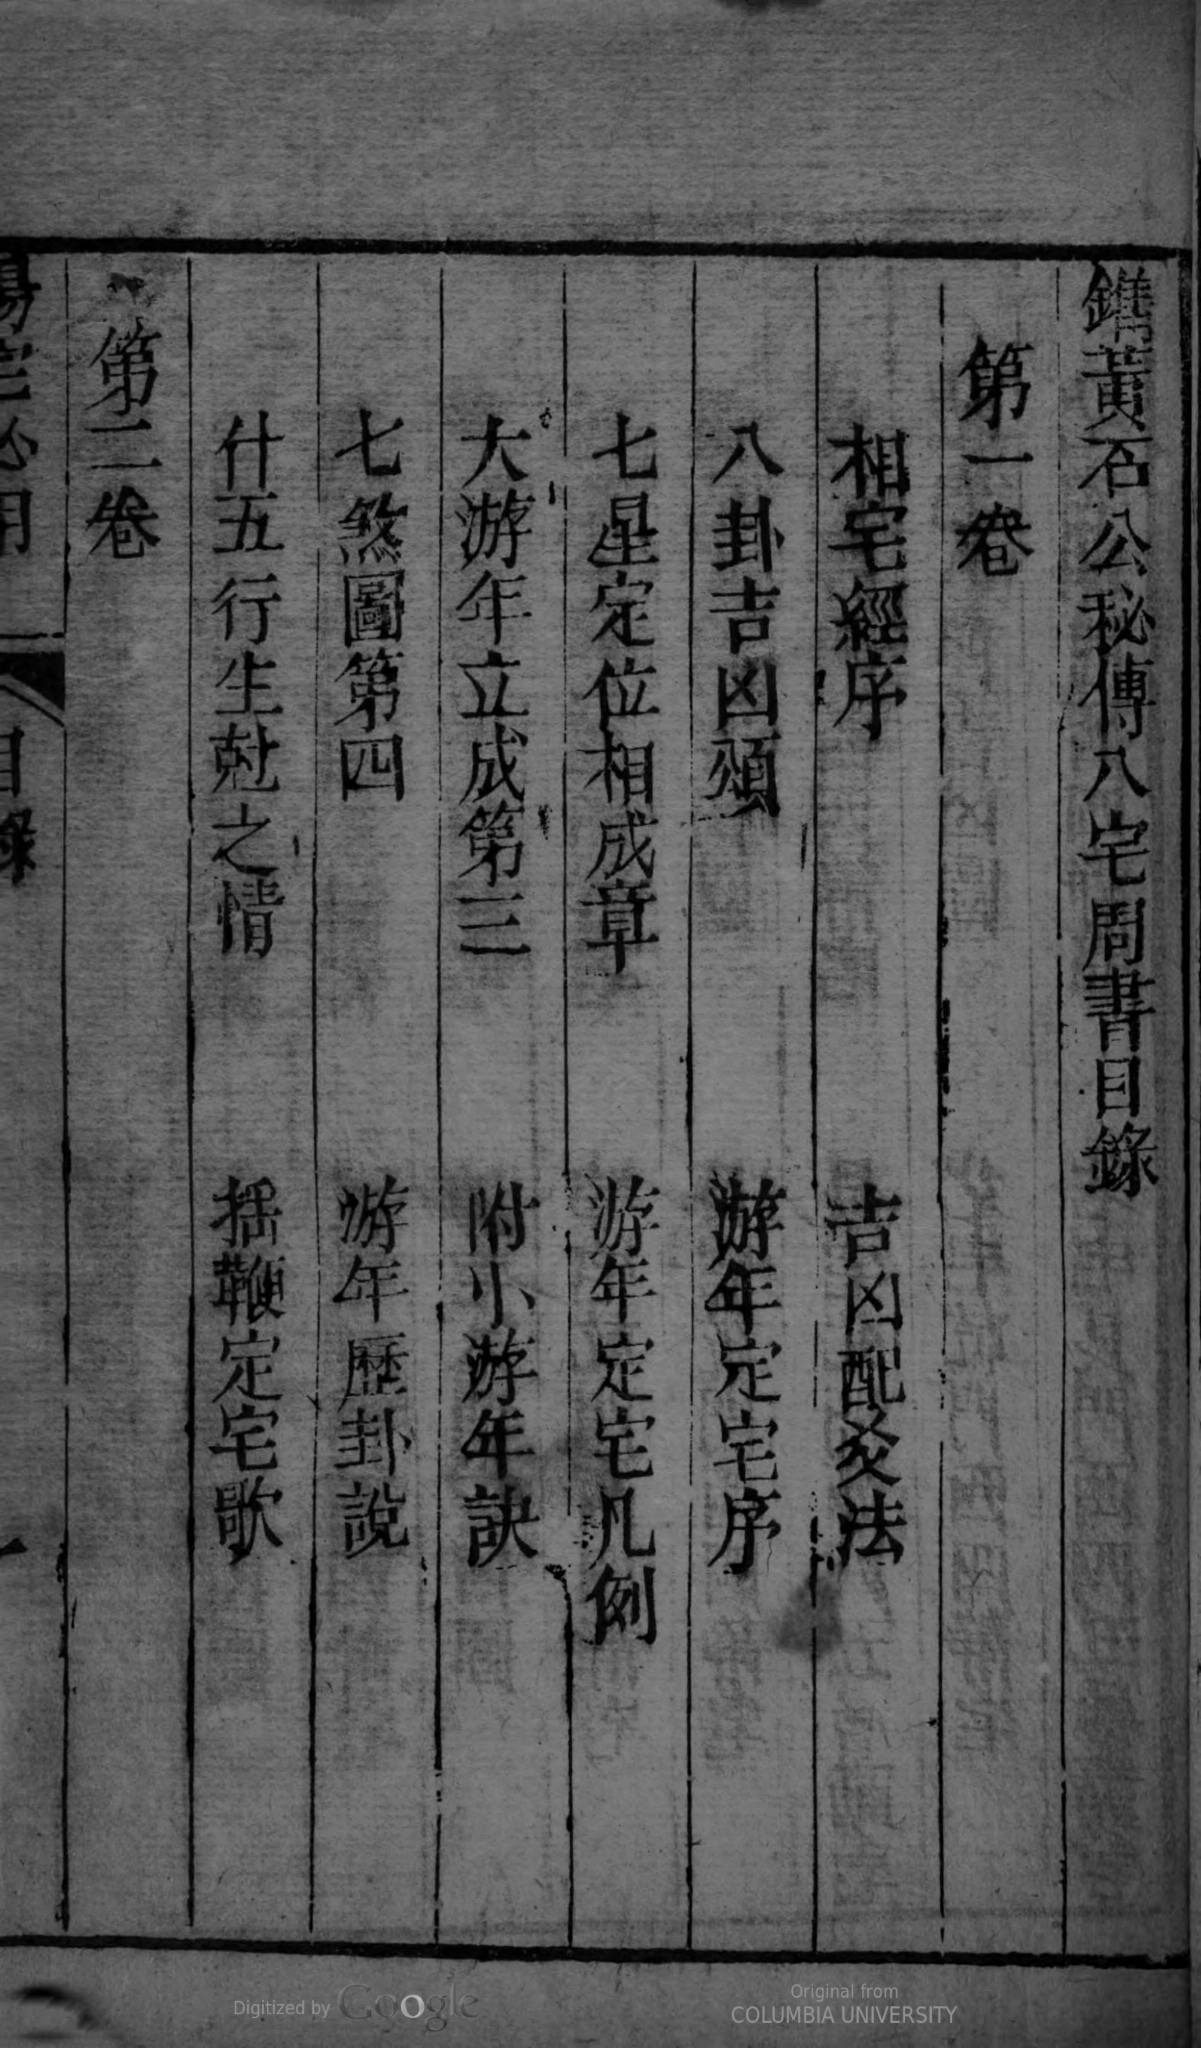 鐫黃石公秘傳八宅周書目錄
第一卷
相宅經序　吉凶配爻法
八卦吉凶頌　游年定宅序
七星定位相成章　游年定宅凡例
大游年立成第三　附小游年訣
七煞圖第四　游年歷卦說
什五行生尅之情　搖鞭定宅歌
第二卷
陽宅必用　目錄　一
Digitized by Google
Original from
COLUMBIA UNIVERSITY